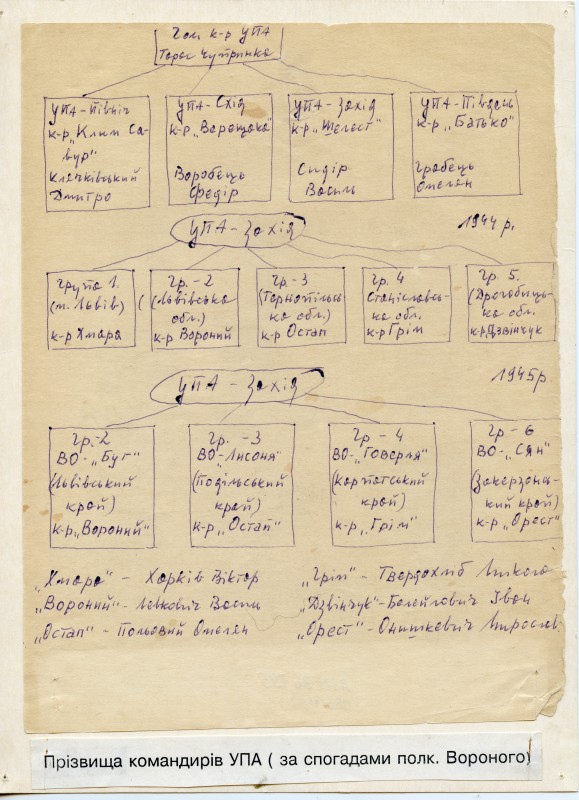 Гол. к-р УПА
Тарас Чупринка
УПА-Північ
к-р „Клим Са-
вур"
Клячківський
Дмитро
УПА-Схід
к-р „Верещака"
Воробець
Федір
УПА-Захід
к-р „Шелест"
Сидір
Василь
УПА-Південь
к-р „Батько"
Грабець
Омелян
УПА-Захід
1944 р.
Група 1.
(м. Львів)
к-р Хмара
Гр.-2
(Львівська
обл.)
к-р Вороний
Гр.-3
(Тернопільсь-
ка обл.)
к-р Остап
Гр. 4
Станіславсь-
ка обл.
к-р Грім
Гр. 5.
(Дрогобиць-
ка обл.
к-р Дзвінчук
УПА-Захід
1945 р.
Гр.-2
ВО-„Буг"
(Львівський
край)
к-р „Вороний"
Гр. -3
ВО-„Лисоня"
(Подільський
край)
к-р „Остап"
Гр - 4
ВО-„Говерля"
(Карпатський
край)
к-р „Грім"
Гр - 6
ВО-„Сян"
(Закерзонсь-
кий край)
к-р „Орест"
„Хмара" - Харків Віктор
„Вороний" - Левкович Васил
„Остап" - Польовий Омелян
„Грім" - Твердохліб Микола
„Дзвінчук" - Белейлович Іван
„Орест" - Онишкевич Мирослав
Прізвища командирів УПА ( за спогадами полк. Вороного)